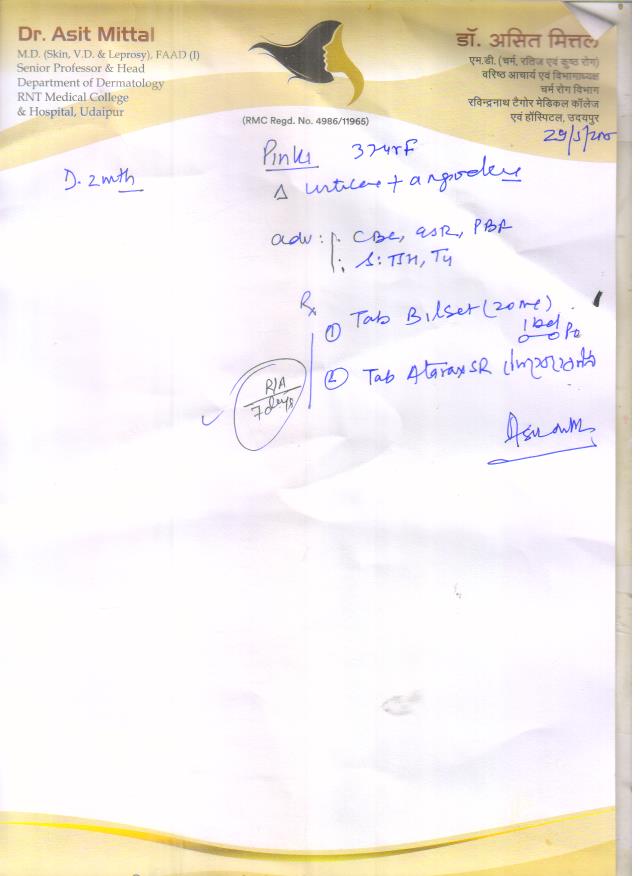 Dr. Asit Mittal
M.D. (Skin, V.D. & Leprosy), FAAD (I)
Senior Professor & Head
Department of Dermatology
RNT Medical College
& Hospital, Udaipur
डॉ. असित मित्तल
एम.डी. (चर्म, रतिज एवं कुष्ठ रोग)
वरिष्ठ आचार्य एवं विभागाध्यक्ष
चर्म रोग विभाग
रविन्द्रनाथ टैगोर मेडिकल कॉलेज
एवं हॉस्पिटल, उदयपुर
(RMC Regd. No. 4986/11965)
D. 2 mth
Δ
adv: CBC, ESR, PBF
S. TSH, T4
Rx
① Tab Bilset (20 mg)
② Tab Atarax SR
R/A
7 days